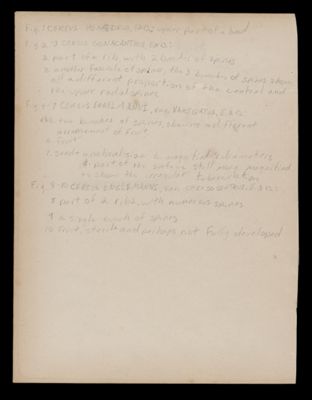 Fig. 1 CEREUS upper part of a
Fig 2-3 CEREUS GONACANTHUS, E&B
2 part of a rib, with 2 bunches of spines
3 another fascicle of spines, the 3 bunches of spines show
all a different proportion of the central and
the upper radial spines
Fig 4-7 CEREUS var.
two bunches of spines, showing a different
arrangement of
6 fruit
7 seeds natural size & magnified diameters
& part of the surface still more magnified
to show the irregular tuberculation
Fig 8-10 CEREUS var.
8 part of 2 ribs, with numerous spines
9 a single bunch of spines
10 fruit, sterile and perhaps not fully developed